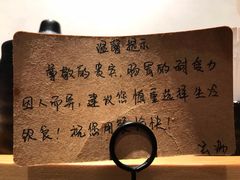 温馨提示
尊敬的贵宾，肠胃的耐受力
因人而异，建议您慎重选择生冷
饮食！祝您用餐愉快！